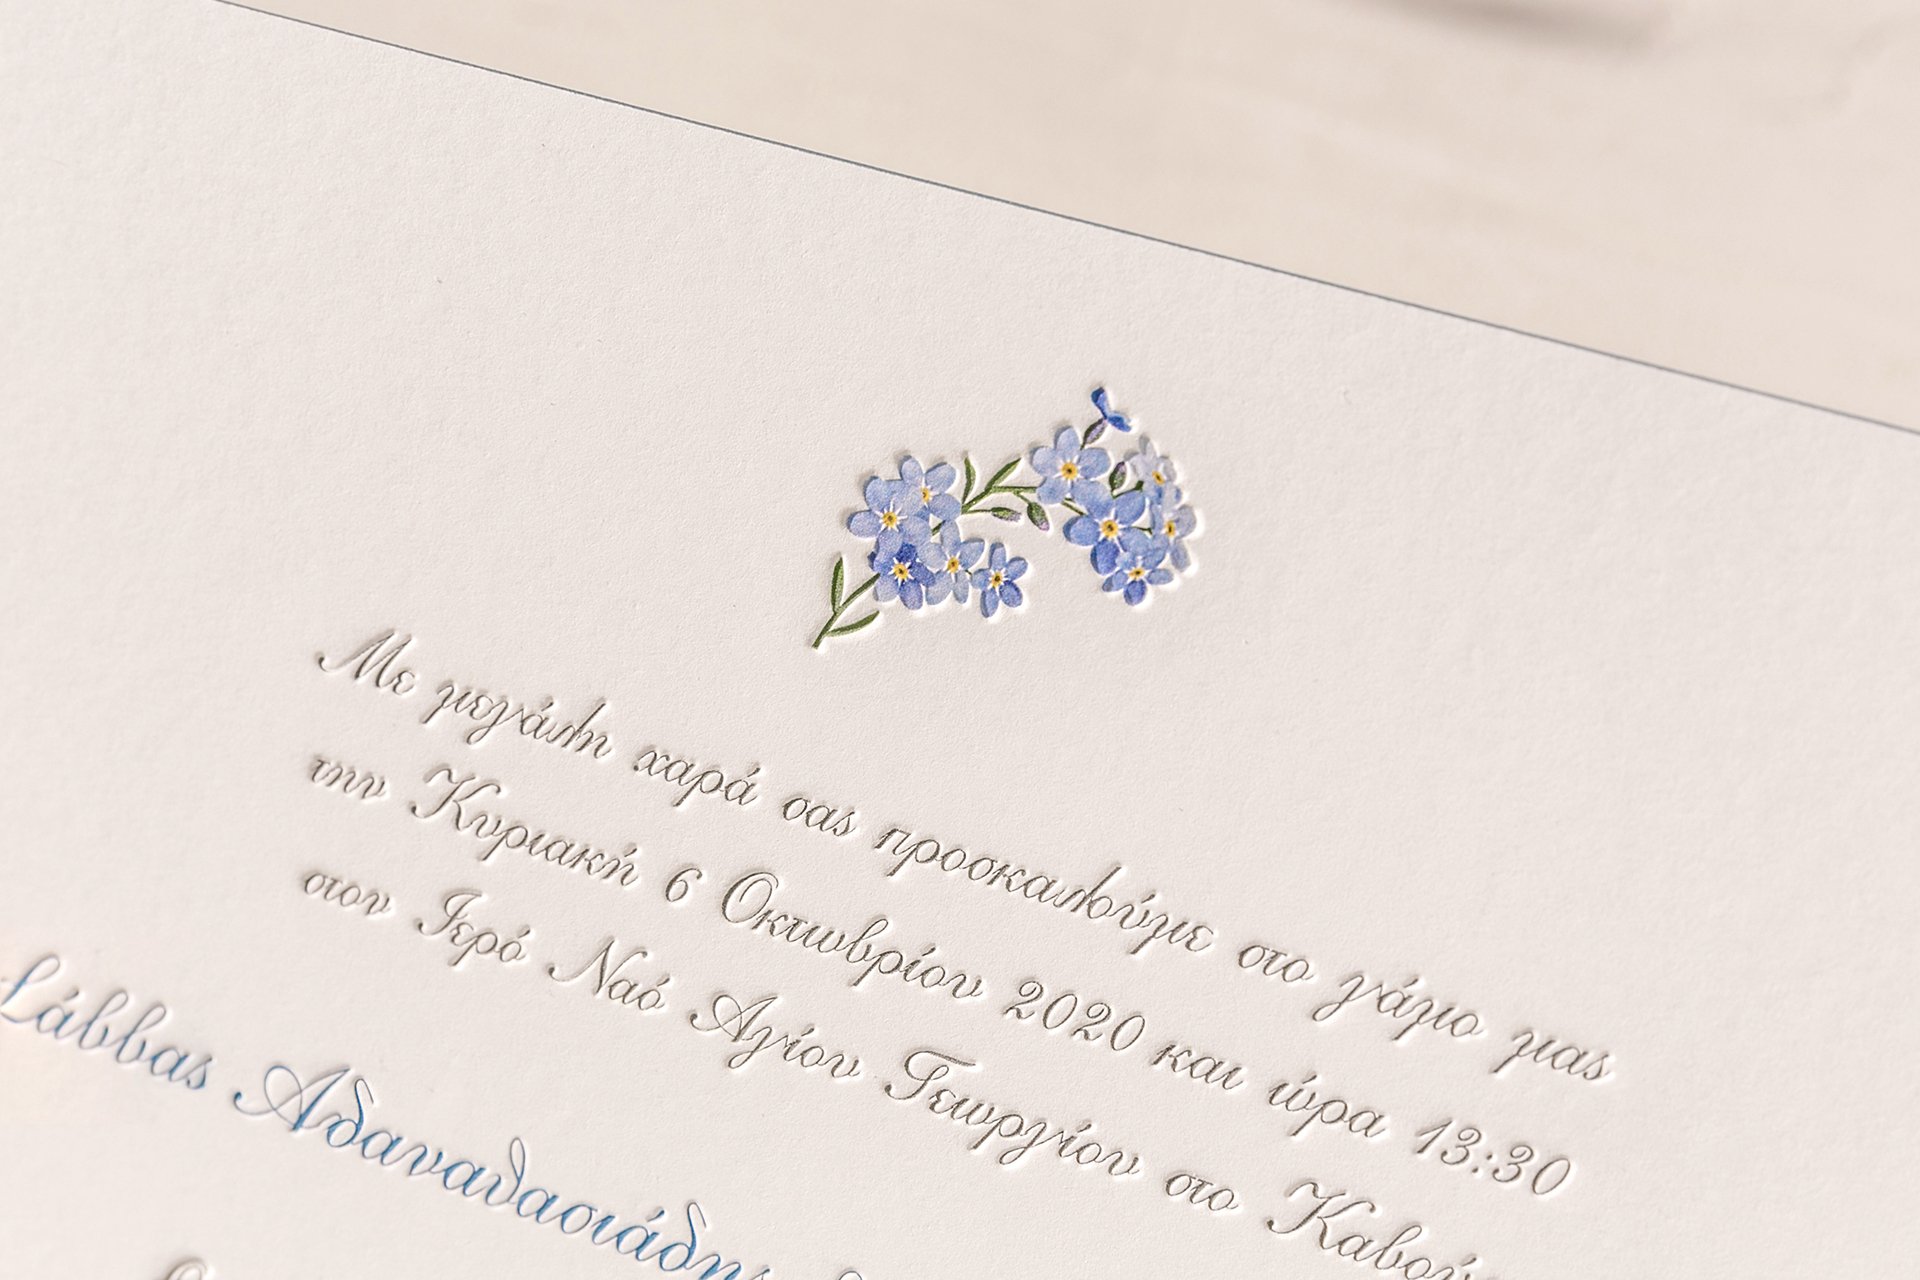 Με μεγάλη χαρά σας προσκαλούμε στο γάμο μας
την Κυριακή 6 Οκτωβρίου 2020 και ώρα 13:30
στον Ιερό Ναό Αγίου Γεωργίου στο
Σάββας